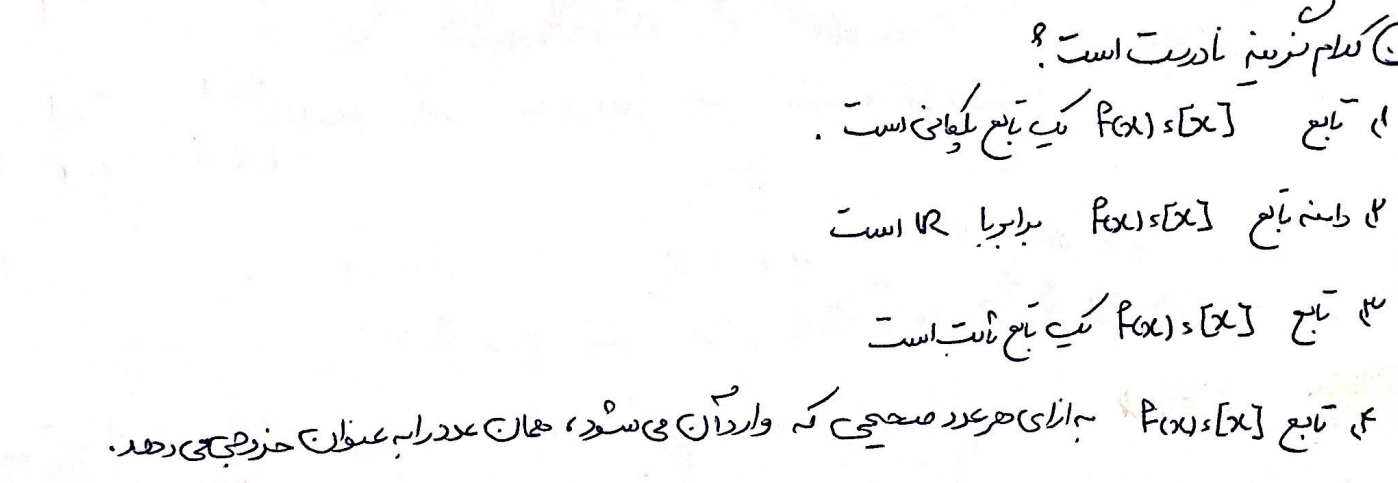 کدام گزینه نادرست است؟
۱) تابع f(x)=[x] یک تابع پلکانی است.
۲) دامنه تابع f(x)=[x] برابر با ℝ است
۳) تابع f(x)=[x] یک تابع ثابت است
۴) تابع f(x)=[x] به ازای هر عدد صحیحی که وارد آن می‌شود، همان عدد را به عنوان خروجی می‌دهد.